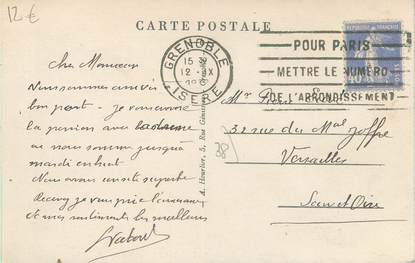 12 €
CARTE POSTALE
GRENOBLE
15
12 - IX
ISÈRE
POUR PARIS
METTRE LE NUMÉRO
DE L'ARRONDISSEMENT
Cher Monsieur
Nous sommes arrivés
bon port. Je vous
la pension avec
où nous sommes jusqu'à
mardi en huit
Nous avons
Recevez je vous prie l'assurance
et mes sentiments les meilleurs
A. Hourlier, 5, Rue
Mr
32 rue du Mal Joffre
38
Versailles
Seine et Oise